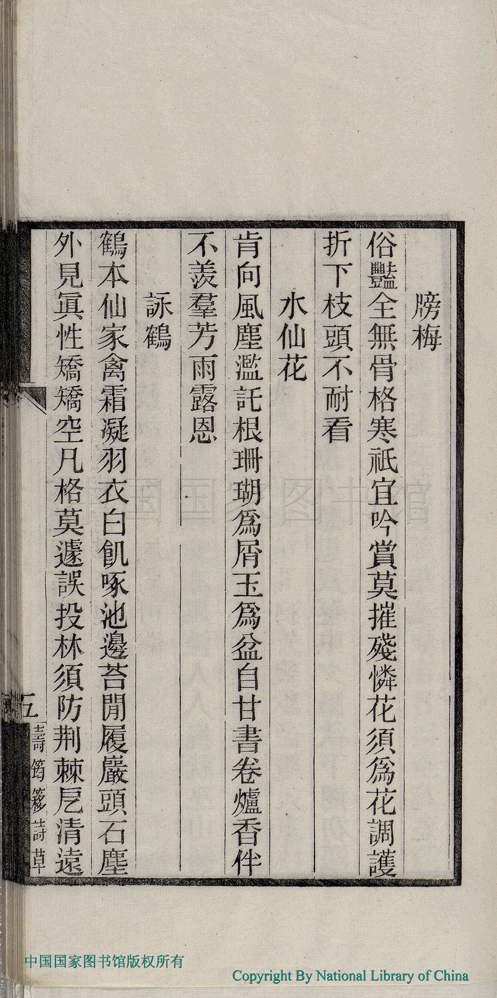 牓梅
俗豔全無骨格寒祇宜吟賞莫摧殘憐花須爲花調護
折下枝頭不耐看
水仙花
肯向風塵濫託根珊瑚爲屑玉爲盆自甘書卷爐香伴
不羨羣芳雨露恩
詠鶴
鶴本仙家禽霜凝羽衣白飢啄池邊苔閒履巖頭石塵
外見眞性矯矯空凡格莫遽誤投林須防荆棘戹清遠
五
壽筠簃詩草
中国国家图书馆
中国国家图书馆版权所有
Copyright By National Library of China